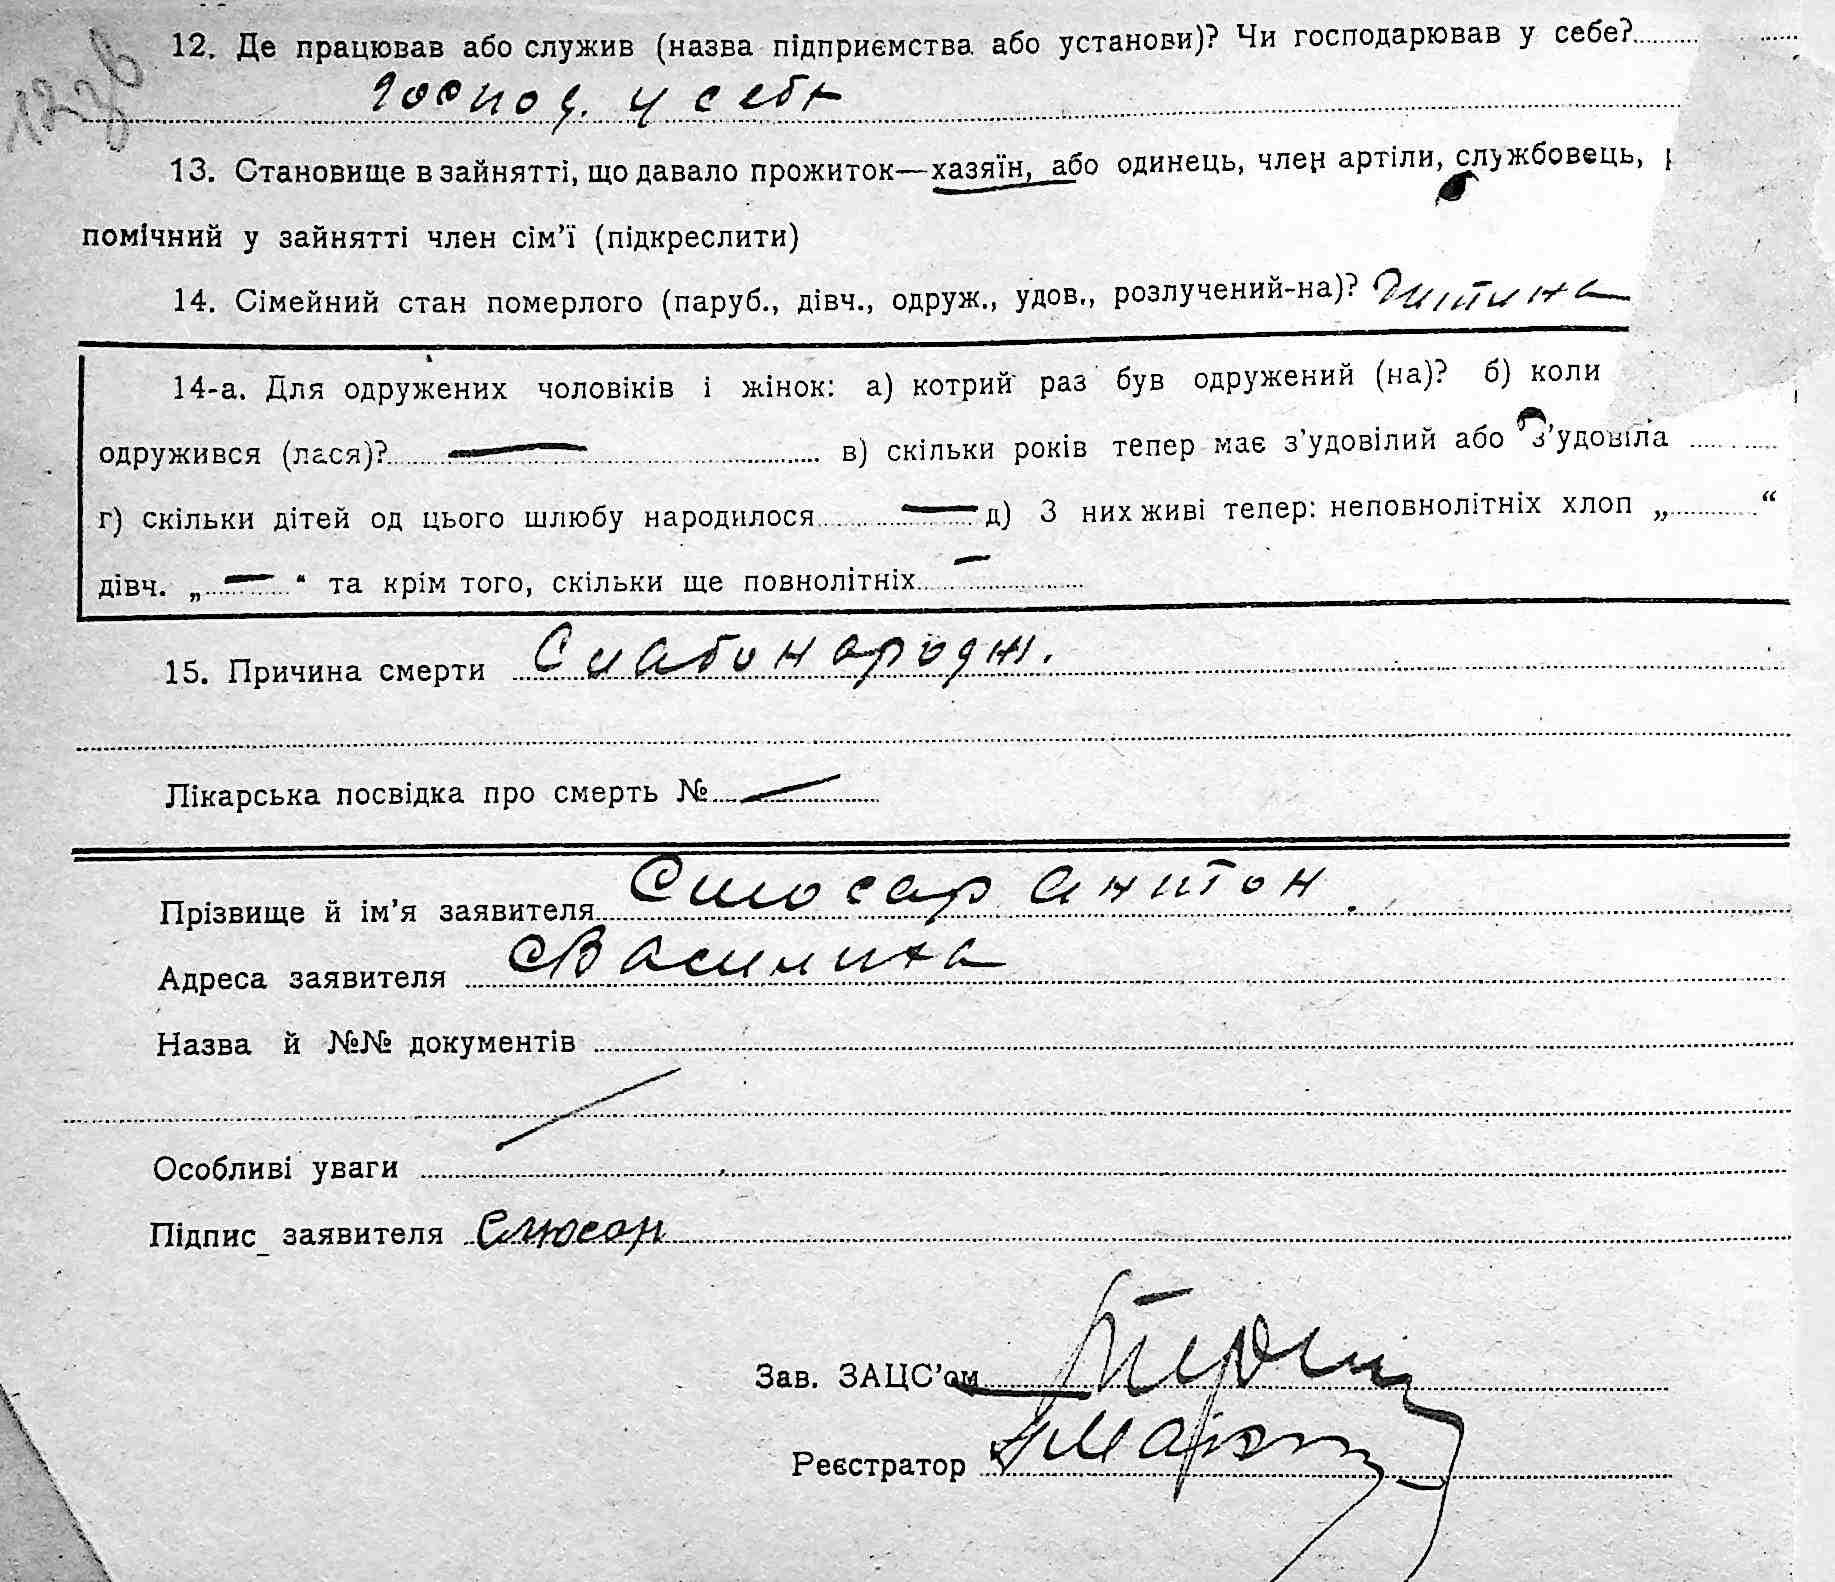 12зв
12. Де працював або служив (назва підприємства або установи)? Чи господарював у себе?
Господ. у себе
13. Становище в зайнятті, що давало прожиток—хазяїн, або одинець, член артіли, службовець,
помічний у зайнятті член сім’ї (підкреслити)
14. Сімейний стан померлого (паруб., дівч., одруж., удов., розлучений-на)? Дитина
14-а. Для одружених чоловіків і жінок: а) котрий раз був одружений (на)? б) коли
одружився (лася)? — в) скільки років тепер має з’удовілий або з’удовіла
г) скільки дітей од цього шлюбу народилося — д) З них живі тепер: неповнолітніх хлоп „ “
дівч. „ — “ та крім того, скільки ще повнолітніх —
15. Причина смерти Слабонародж.
Лікарська посвідка про смерть № —
Прізвище й ім’я заявителя Слюсар Антон.
Адреса заявителя
Назва й №№ документів
Особливі уваги
Підпис заявителя Слюсар
Зав. ЗАЦС’ом
Реєстратор